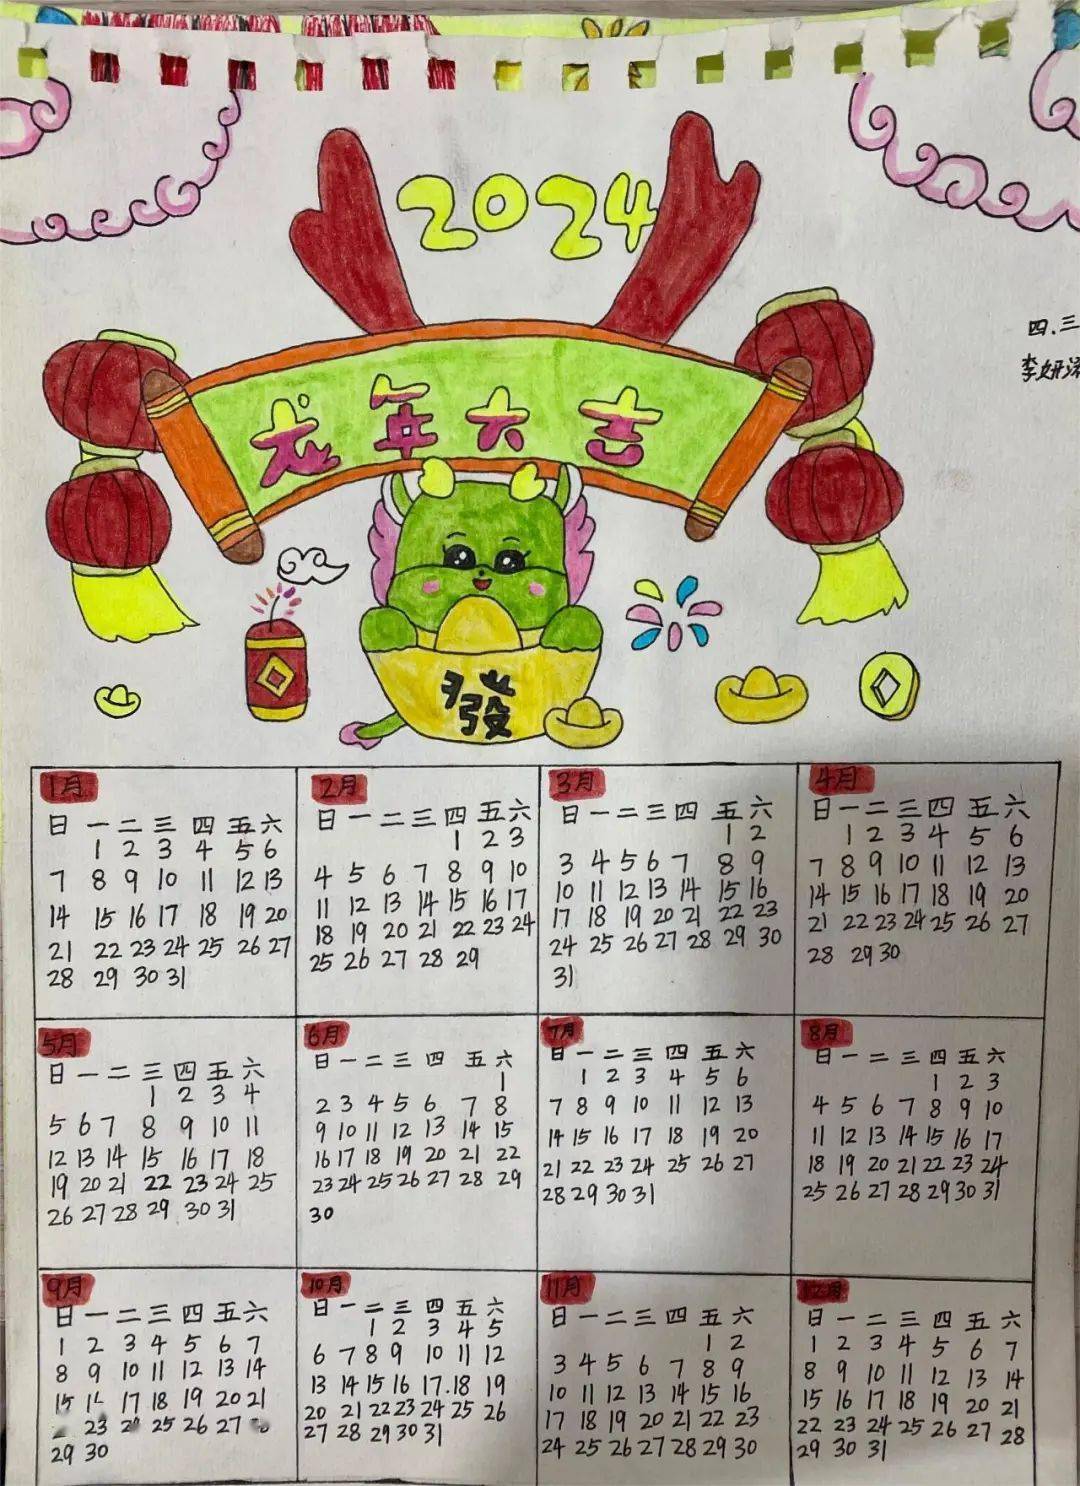 2024
四.三
李妍
龙年大吉
發
1月
日 一 二 三 四 五 六
1 2 3 4 5 6
7 8 9 10 11 12 13
14 15 16 17 18 19 20
21 22 23 24 25 26 27
28 29 30 31
2月
日 一 二 三 四 五 六
1 2 3
4 5 6 7 8 9 10
11 12 13 14 15 16 17
18 19 20 21 22 23 24
25 26 27 28 29
3月
日 一 二 三 四 五 六
1 2
3 4 5 6 7 8 9
10 11 12 13 14 15 16
17 18 19 20 21 22 23
24 25 26 27 28 29 30
31
4月
日 一 二 三 四 五 六
1 2 3 4 5 6
7 8 9 10 11 12 13
14 15 16 17 18 19 20
21 22 23 24 25 26 27
28 29 30
5月
日 一 二 三 四 五 六
1 2 3 4
5 6 7 8 9 10 11
12 13 14 15 16 17 18
19 20 21 22 23 24 25
26 27 28 29 30 31
6月
日 一 二 三 四 五 六
1
2 3 4 5 6 7 8
9 10 11 12 13 14 15
16 17 18 19 20 21 22
23 24 25 26 27 28 29
30
7月
日 一 二 三 四 五 六
1 2 3 4 5 6
7 8 9 10 11 12 13
14 15 16 17 18 19 20
21 22 23 24 25 26 27
28 29 30 31
8月
日 一 二 三 四 五 六
1 2 3
4 5 6 7 8 9 10
11 12 13 14 15 16 17
18 19 20 21 22 23 24
25 26 27 28 29 30 31
9月
日 一 二 三 四 五 六
1 2 3 4 5 6 7
8 9 10 11 12 13 14
15 17 18 19 20 21
23 25 26 27
29 30
10月
日 一 二 三 四 五 六
1 2 3 4 5
6 7 8 9 10 11 12
13 14 15 16 17.18 19
20 21 22 23 24 25 26
27 28 29 30 31
11月
日 一 二 三 四 五 六
1 2
3 4 5 6 7 8 9
10 11 12 13 14 15 16
17 18 19 20 21 22 23
24 25 26 27 28 29 30
12月
日 一 二 三 四 五 六
1 2 3 4 5 6 7
8 9 10 11 12 13 14
15 16 17 18 19 20 21
22 23 24 25 26 27 28
29 30 31